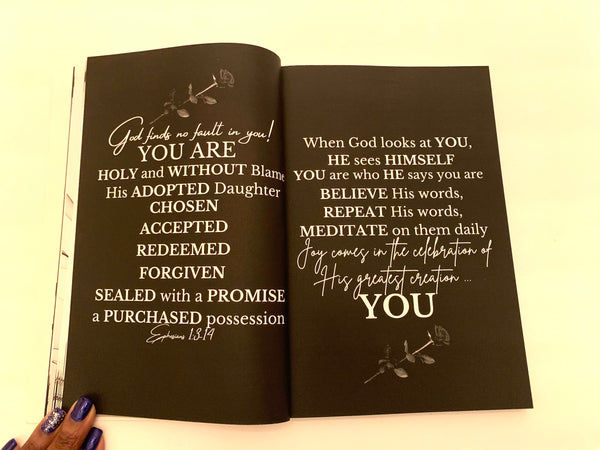 God finds no fault in you!
YOU ARE
HOLY and WITHOUT Blame
His ADOPTED Daughter
CHOSEN
ACCEPTED
REDEEMED
FORGIVEN
SEALED with a PROMISE
a PURCHASED possession
Ephesians 1:3-14
When God looks at YOU,
HE sees HIMSELF
YOU are who HE says you are
BELIEVE His words,
REPEAT His words,
MEDITATE on them daily
Joy comes in the celebration of
His greatest creation ...
YOU